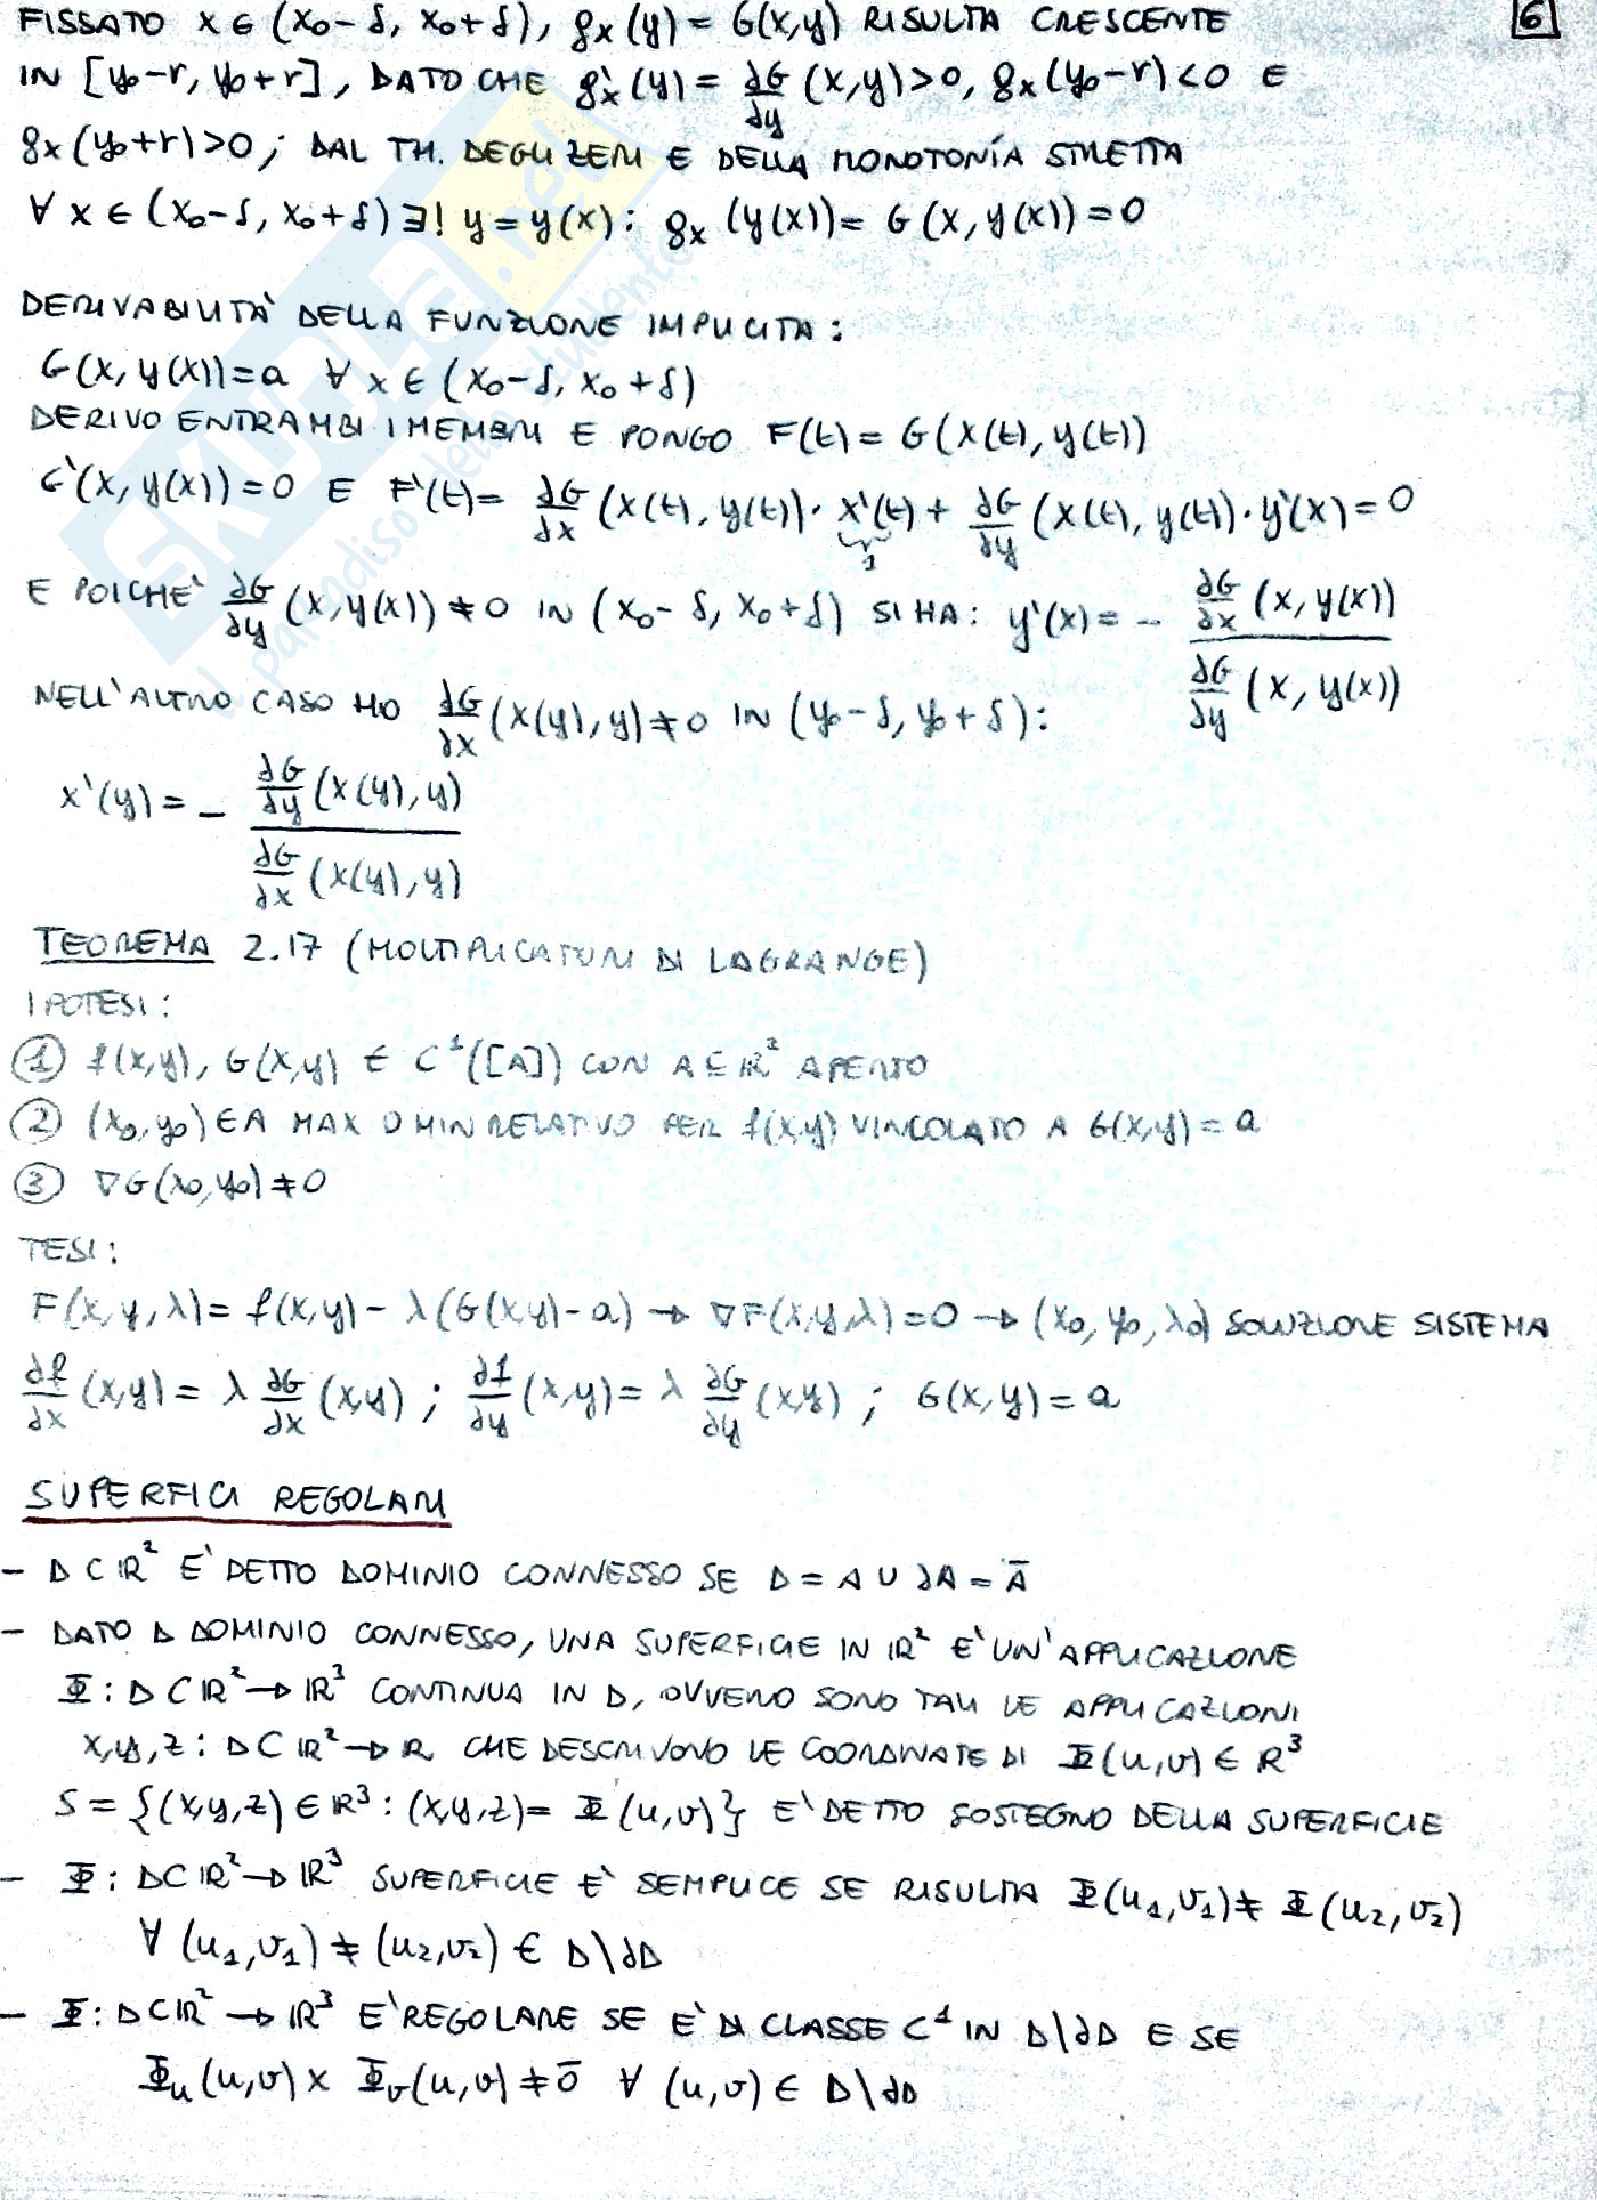 FISSATO x ∈ (x₀-δ, x₀+δ), gx(y) = G(x,y) RISULTA CRESCENTE
6
IN [y₀-r, y₀+r], DATO CHE gx'(y) = ∂G/∂y (x,y)>0, gx(y₀-r)<0 E
gx(y₀+r)>0; DAL TH. DEGLI ZERI E DELLA MONOTONÍA STRETTA
∀ x ∈ (x₀-δ, x₀+δ) ∃! y = y(x): gx (y(x)) = G(x, y(x)) = 0
DERIVABILITA' DELLA FUNZIONE IMPLICITA:
G(x, y(x)) = a ∀ x ∈ (x₀-δ, x₀+δ)
DERIVO ENTRAMBI I MEMBRI E PONGO F(t) = G(x(t), y(t))
G'(x, y(x)) = 0 E F'(t) = ∂G/∂x (x(t), y(t)) · x'(t) + ∂G/∂y (x(t), y(t)) · y'(x) = 0
1
E POICHE' ∂G/∂y (x, y(x)) ≠ 0 IN (x₀-δ, x₀+δ) SI HA: y'(x) = - ∂G/∂x (x, y(x)) / ∂G/∂y (x, y(x))
NELL'ALTRO CASO HO ∂G/∂x (x(y), y) ≠ 0 IN (y₀-δ, y₀+δ):
x'(y) = - ∂G/∂y (x(y), y) / ∂G/∂x (x(y), y)
TEOREMA 2.17 (MOLTIPLICATORI DI LAGRANGE)
IPOTESI:
① f(x,y), G(x,y) ∈ C¹([A]) CON A ⊆ ℝ² APERTO
② (x₀,y₀) ∈ A MAX O MIN RELATIVO PER f(x,y) VINCOLATO A G(x,y) = a
③ ∇G(x₀,y₀) ≠ 0
TESI:
F(x,y,λ) = f(x,y) - λ(G(x,y)-a) → ∇F(x,y,λ) = 0 → (x₀, y₀, λ₀) SOLUZIONE SISTEMA
∂f/∂x (x,y) = λ ∂G/∂x (x,y); ∂f/∂y (x,y) = λ ∂G/∂y (x,y); G(x,y) = a
SUPERFICI REGOLARI
- D ⊂ ℝ² E' DETTO DOMINIO CONNESSO SE D = A ∪ ∂A = Ā
- DATO D DOMINIO CONNESSO, UNA SUPERFICIE IN ℝ² E' UN'APPLICAZIONE
Φ: D ⊂ ℝ² → ℝ³ CONTINUA IN D, OVVERO SONO TALI LE APPLICAZIONI
x,y,z: D ⊂ ℝ² → ℝ CHE DESCRIVONO LE COORDINATE DI Φ(u,v) ∈ ℝ³
S = {(x,y,z) ∈ ℝ³: (x,y,z) = Φ(u,v)} E' DETTO SOSTEGNO DELLA SUPERFICIE
- Φ: D ⊂ ℝ² → ℝ³ SUPERFICIE E' SEMPLICE SE RISULTA Φ(u₁,v₁) ≠ Φ(u₂,v₂)
∀ (u₁,v₁) ≠ (u₂,v₂) ∈ D\∂D
- Φ: D ⊂ ℝ² → ℝ³ E' REGOLARE SE E' DI CLASSE C¹ IN D\∂D E SE
Φu(u,v) x Φv(u,v) ≠ 0̄ ∀ (u,v) ∈ D\∂D
SKUOLA.net
Il paradiso dello studente